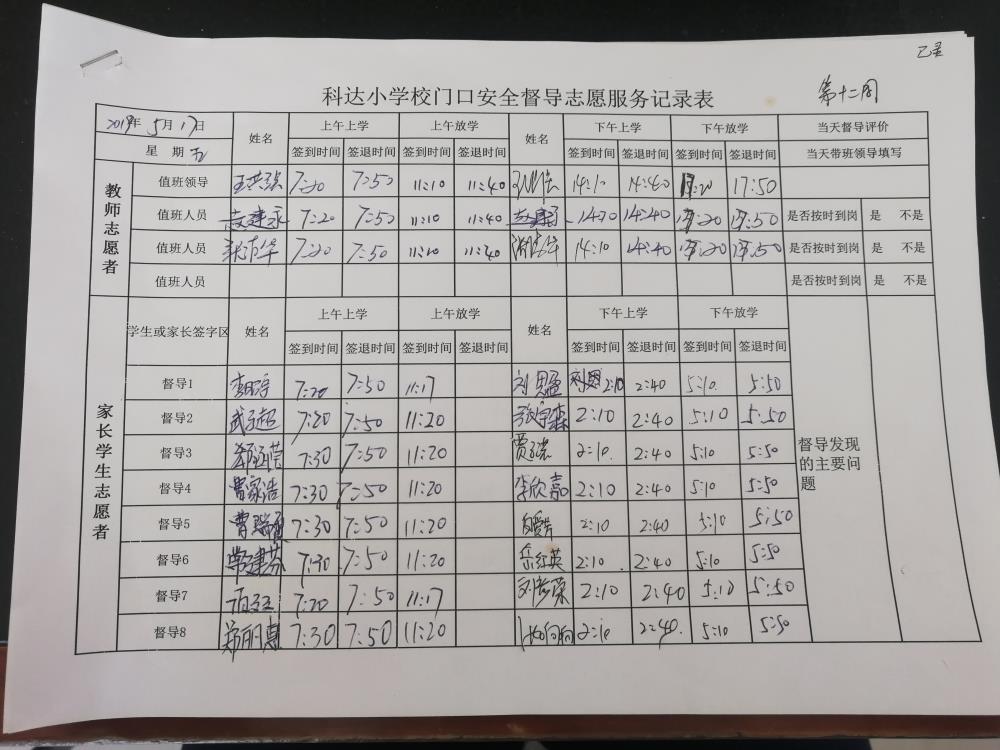 已录
科达小学校门口安全督导志愿服务记录表 第十二周
2019年5月17日 姓名 上午上学 上午放学 姓名 下午上学 下午放学 当天督导评价
星 期 五 签到时间 签退时间 签到时间 签退时间 签到时间 签退时间 签到时间 签退时间 当天带班领导填写
教师志愿者
值班领导 王洪强 7:20 7:50 11:10 11:40 14:10 14:40 17:20 17:50
值班人员 赵建永 7:20 7:50 11:10 11:40 赵建永 14:20 14:40 17:20 17:50 是否按时到岗 是 不是
值班人员 7:20 7:50 11:10 11:40 14:10 14:40 17:20 17:50 是否按时到岗 是 不是
值班人员 是否按时到岗 是 不是
家长学生志愿者
学生或家长签字区 姓名 上午上学 上午放学 姓名 下午上学 下午放学
签到时间 签退时间 签到时间 签退时间 签到时间 签退时间 签到时间 签退时间
督导1 7:20 7:50 11:17 2:10 2:40 5:10. 5:50
督导2 武子超 7:20 7:50 11:20 张宇森 2:10 2:40 5:10 5:50
督导3 7:30 7:50 11:20 2:10. 2:40 5:10 5:50
督导4 曹家浩 7:30 7:50 11:20 李欣嘉 2:10 2:40 5:10 5:50
督导5 7:30 7:50 11:20 2:10 2:40 5:10 5:50
督导6 常建芬 7:30 7:50 11:20 岳红英 2:10. 2:40 5:10 5:50
督导7 7:20 7:50 11:17 2:10 2:40 5:10 5:50
督导8 郑丽慧 7:30 7:50 11:20 2:10 2:40. 5:10 5:50
督导发现的主要问题